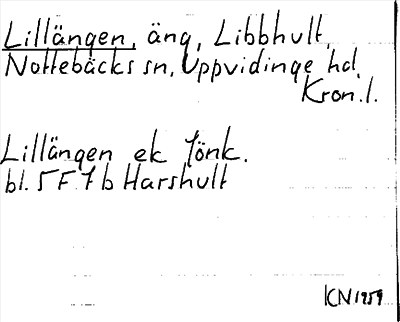 Lillängen, äng, Libbhult,
Nottebäcks sn, Uppvidinge hd.
Kron.l.
Lillängen ek Jönk.
bl. 5 F 7 b Harshult
KN 1959